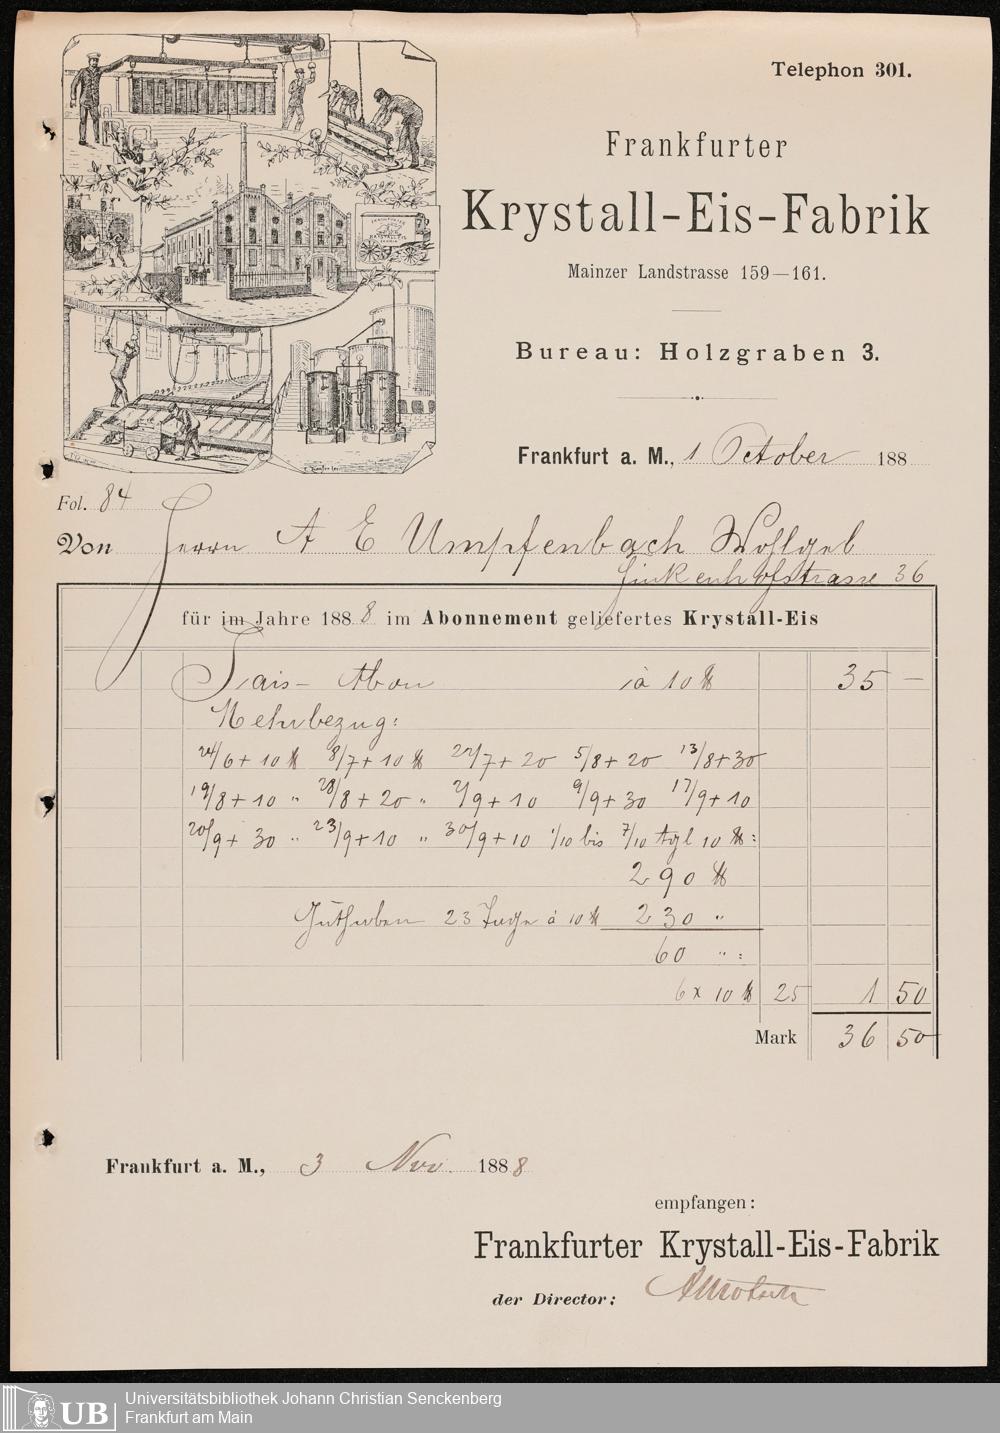 Telephon 301.
Frankfurter
Krystall-Eis-Fabrik
Mainzer Landstrasse 159—161.
Bureau: Holzgraben 3.
Frankfurt a. M., 1 October 188
Fol. 84
Von Herrn A E Umpfenbach Wohlgeb
Finkenhofstrasse 36
für im Jahre 1888 im Abonnement geliefertes Krystall-Eis
Sais- Abon à 10 ℔ 35 —
Mehrbezug:
24/6 + 10 ℔ 8/7 + 10 ℔ 22/7 + 20 5/8 + 20 13/8 + 30
19/8 + 10 " 28/8 + 20 " 2/9 + 10 9/9 + 30 17/9 + 10
20/9 + 30 " 23/9 + 10 " 30/9 + 10 1/10 bis 7/10 tgl 10 ℔:
290 ℔
Guthaben 23 Tage à 10 ℔ 230 "
60 ":
6 x 10 ℔ 25 1 50
Mark 36 50
Frankfurt a. M., 3 Nov. 1888
empfangen:
Frankfurter Krystall-Eis-Fabrik
der Director:
UB
Universitätsbibliothek Johann Christian Senckenberg
Frankfurt am Main